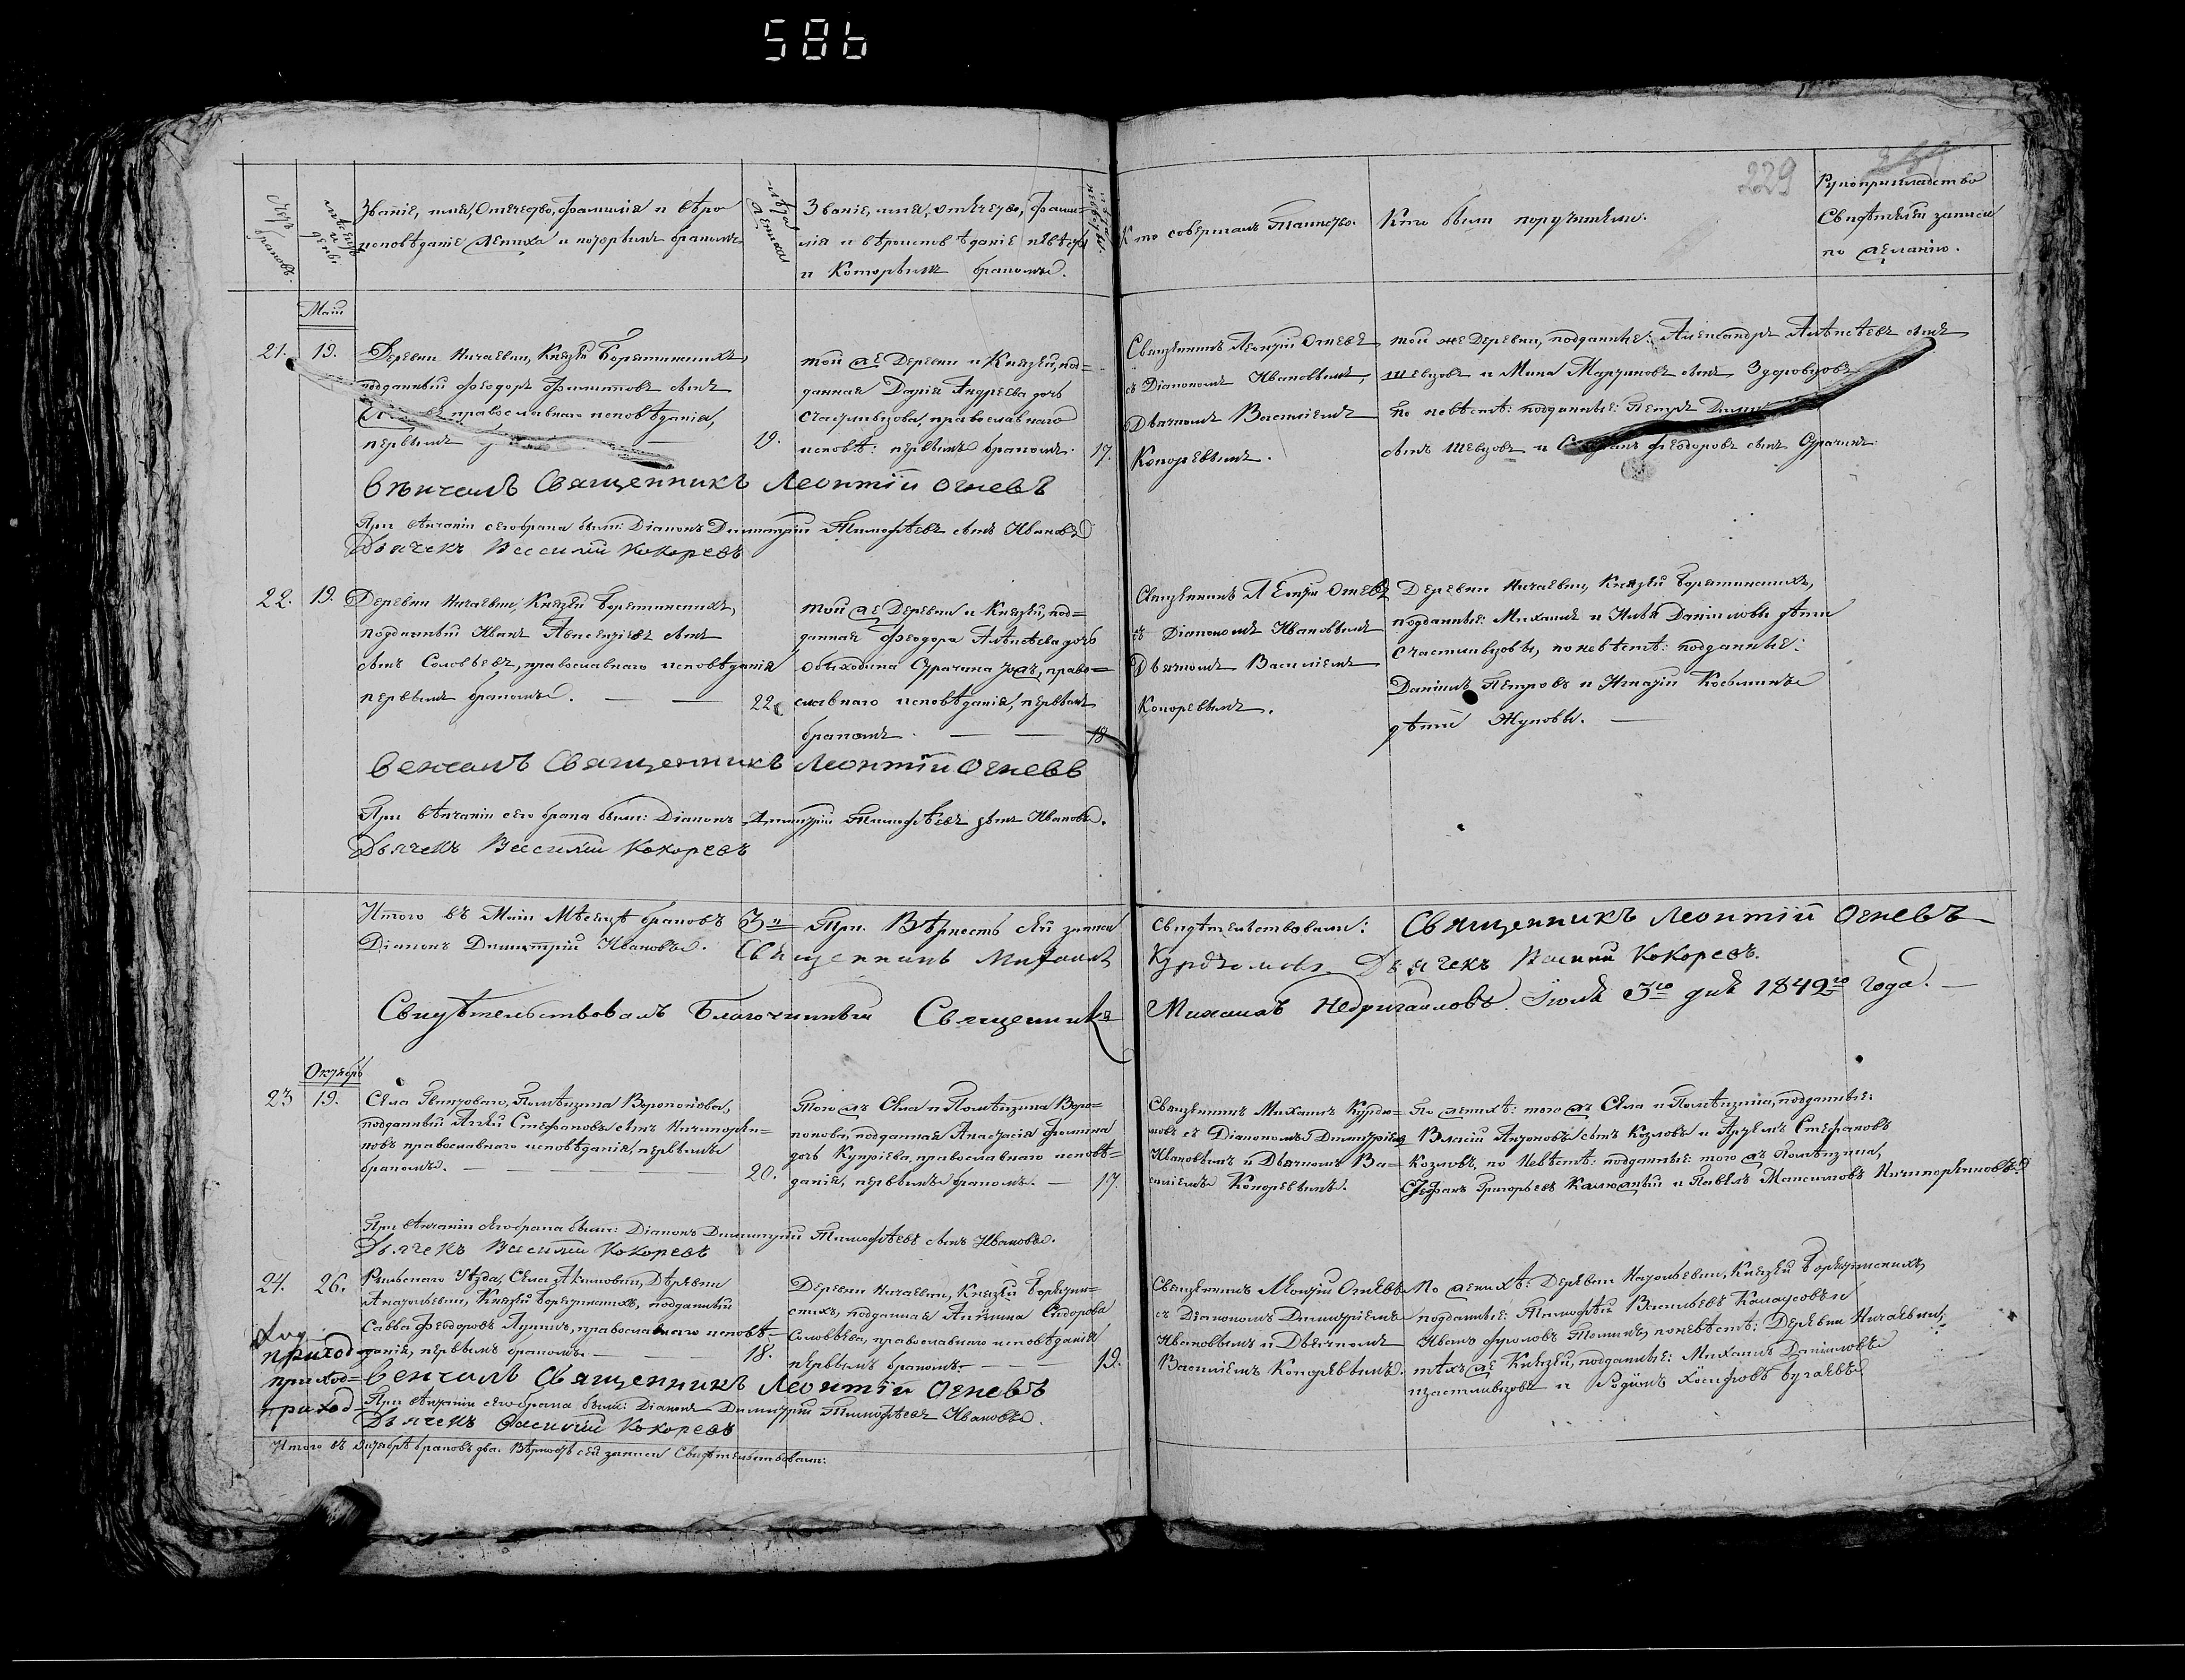 586
229
Счетъ браковъ.
мѣсяцъ и день.
Званіе, имя, Отечество, фамилія и вѣро
исповѣданіе жениха и которымъ бракомъ
лѣта жениха
Званіе, имя, отечество, фами-
лія и вѣроисповѣданіе невѣсты
и Которымъ бракомъ.
Кто совершалъ Таинство.
Кто были поручители.
Рукоприкладство
Свидѣтелей записи
по желанію.
Маій
21. 19.
Деревни Ничаевки, Князей Борятинскихъ,
подданный Феодоръ Филиповъ сынъ
православнаго исповѣданія,
первымъ
19.
той же Деревни и Князей, под=
данная Дарія Андреева дочь
Счастливцова, православнаго
исповѣ: первымъ бракомъ.
17.
Священникъ Леонтій Огневъ
съ Діакономъ Ивановымъ,
Дьячкомъ Василіемъ
Кокоревымъ.
той же Деревни, подданные: Александръ Алексѣевъ сынъ
Шевцовъ и Мина Мартиновъ сынъ Здоровцовъ
по невѣстѣ: подданные: Петръ
сынъ Шевцовъ и Феодоровъ сынъ
Вѣнчалъ Священникъ Леонтій Огневъ
При вѣнчаніи сего брака были: Діаконъ Димитрій Тимофѣевъ сынъ Ивановъ
Дьячекъ Василій Кокоревъ
22. 19.
Деревни Ничаевки, Князей Борятинскихъ,
подданный Иванъ Авксентіевъ сынъ
сынъ Соловьевъ, православнаго исповѣданія
первымъ бракомъ.
22.
той же Деревни и Князей, под=
данная Феодора Алексѣева дочь
право=
славнаго исповѣданія, первымъ
бракомъ.
18
Священникъ Леонтій Огневъ
съ Діакономъ Ивановымъ
Дьячкомъ Василіемъ
Кокоревымъ.
Деревни Ничаевки, Князей Борятинскихъ,
подданные: Михаилъ и Илья Даниловы дѣти
Счастливцовы, по невѣстѣ: подданные:
Даніилъ Петровъ и Игнатій Косьминъ
дѣти Жуковы.
Венчалъ Священникъ Леонтій Огневъ
При вѣнчаніи сего брака были: Діаконъ Димитрій Тимофѣевъ сынъ Ивановъ.
Дьячекъ Василій Кокоревъ
Итого въ Маіи Мѣсяцѣ браковъ 3 При. Вѣрность сей записи Свидѣтельствовали: Священникъ Леонтій Огневъ
Діаконъ Димитрій Ивановъ. Священникъ Михаилъ Курдюмовъ. Дьячекъ Василій Кокоревъ.
Свидѣтельствовалъ Благочинный Священникъ Михаилъ Недригайловъ. Іюля 3го дня 1842го Года.
Октябрь
23 19.
Села Помѣщика Воропонова,
подданный Стефановъ сынъ Ничипорен=
ковъ православнаго исповѣданія, первымъ
бракомъ.
20.
Того жъ Села и Помѣщика Воро=
понова, подданная Анастасія Фомина
дочь Купріева, православнаго исповѣ=
данія, первымъ бракомъ.
17.
Священникъ Михаилъ Курдю=
мовъ съ Діакономъ Димитріемъ
Ивановымъ и Дьячкомъ Ва=
силіемъ Кокоревымъ.
По женихѣ: того жъ Села и Помѣщика, подданные:
Власій Антоновъ сынъ Козловъ и Артемъ Стефановъ
Козловъ, по Невѣстѣ: подданные: того жъ Помѣщика,
Стефанъ Григорьевъ Калюжный и Павелъ Максимовъ Ничипоренковъ.
При вѣнчаніи сего брака были: Діаконъ Димитрій Тимофѣевъ сынъ Ивановъ.
Дьячекъ Василій Кокоревъ
24. 26.
Рыльскаго Уѣзда, Села Акимовки, Деревни
Анатольевки, Князей Борятинскихъ, подданный
Савва Феодоровъ Лунинъ, православнаго исповѣ=
данія, первымъ бракомъ.
18.
Деревни Ничаевки, Князей Борятин=
скихъ, подданная Акилина Сидорова
Соловьева, православнаго исповѣданія
первымъ бракомъ.
19.
Священникъ Леонтій Огневъ
съ Діакономъ Димитріемъ
Ивановымъ и Дьячкомъ
Василіемъ Кокоревымъ.
По женихѣ: Деревни Натольевки, Князей Борятинскихъ
подданные: Тимофей Васильевъ и
Иванъ Фроловъ Томинъ, по невѣстѣ: Деревни Ничаевки,
тѣхъ же Князей, подданные: Михаилъ Даниловъ
Щастливцовъ и Родіонъ Іосифовъ Бугаевъ.
приход
приход=
приход=
Венчалъ Священникъ Леонтій Огневъ
При вѣнчаніи сего брака были: Діаконъ Димитрій Тимофѣевъ Ивановъ.
Дьячекъ Василій Кокоревъ
Итого въ Октябрѣ браковъ два. Вѣрность сей записи Свидѣтельствовали: